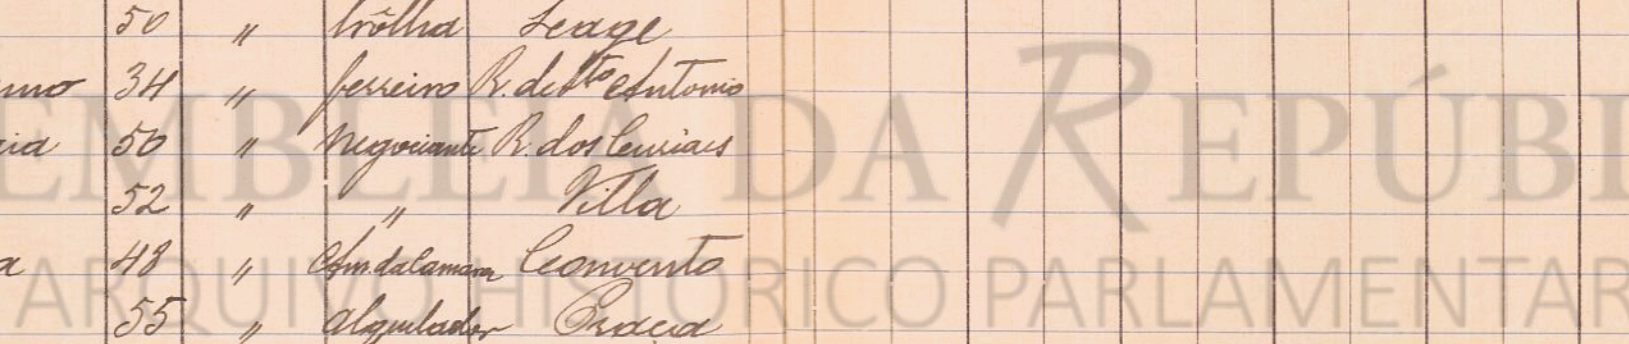 50 " trôlha Leage
34 " ferreiro R. de Sto Antonio
50 " Negociante R. dos
52 " " Villa
48 " Am da Camara Convento
55 " Alquilador Praça
EMBLEIA DA REPÚBL
ARQUIVO HISTÓRICO PARLAMENTAR